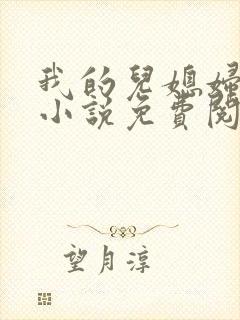 我的兒媳婦
小說免費閱
望月淳